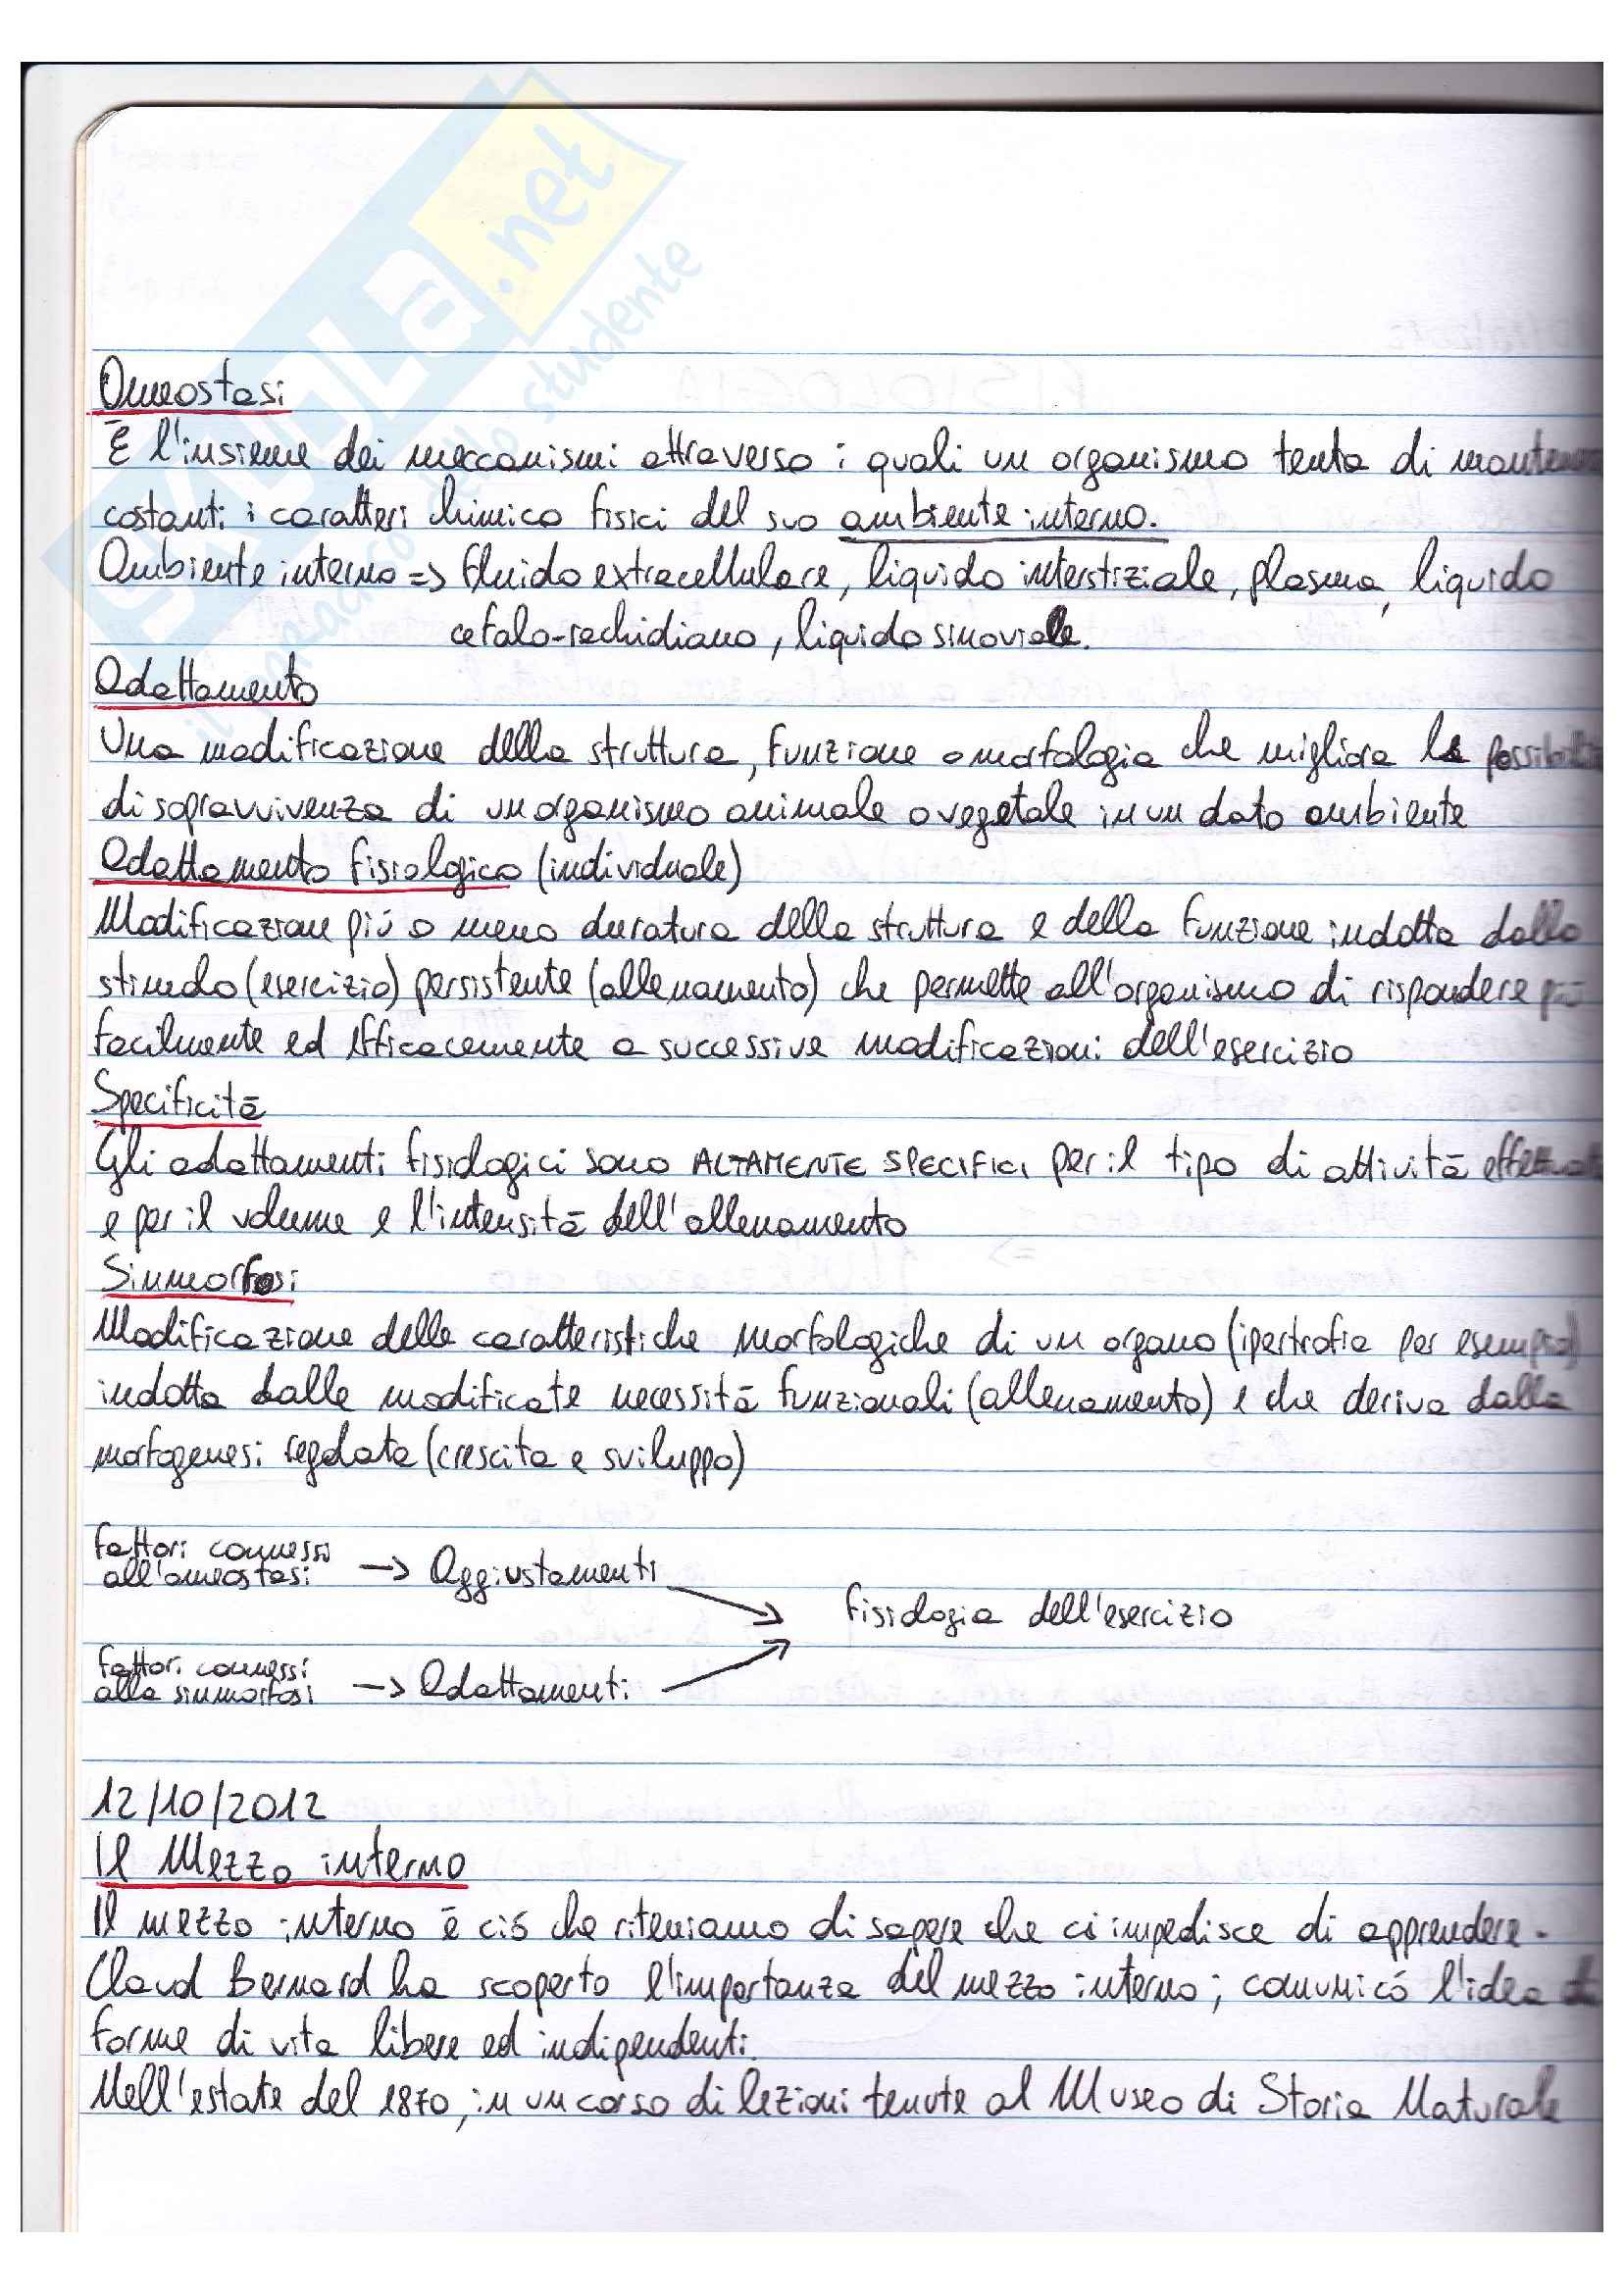 SKUOLA.net
il paradiso dello studente
Omeostasi
È l'insieme dei meccanismi attraverso i quali un organismo tenta di
costanti i caratteri chimico fisici del suo ambiente interno.
Ambiente interno => fluido extracellulare, liquido interstiziale, plasma, liquido
cefalo-rachidiano, liquido sinoviale.
Adattamento
Una modificazione della struttura, funzione o morfologia che migliora le
di sopravvivenza di un organismo animale o vegetale in un dato ambiente
Adattamento fisiologico (individuale)
Modificazione più o meno duratura della struttura e della funzione indotta dallo
stimolo (esercizio) persistente (allenamento) che permette all'organismo di rispondere più
facilmente ed efficacemente a successive modificazioni dell'esercizio
Specificità
Gli adattamenti fisiologici sono ALTAMENTE SPECIFICI per il tipo di attività
e per il volume e l'intensità dell'allenamento
Simmorfosi
Modificazione delle caratteristiche morfologiche di un organo (ipertrofia per esempio)
indotta dalle modificate necessità funzionali (allenamento) e che deriva dalla
morfogenesi regolata (crescita e sviluppo)
Fattori connessi
all'omeostasi -> Aggiustamenti
Fisiologia dell'esercizio
Fattori connessi
alla simmorfosi -> Adattamenti
12/10/2012
Il Mezzo interno
Il mezzo interno è ciò che riteniamo di sapere che ci impedisce di apprendere.
Claud Bernard ha scoperto l'importanza del mezzo interno; comunicò l'idea di
forme di vita libere ed indipendenti.
Nell'estate del 1870, in un corso di lezioni tenute al Museo di Storia Naturale